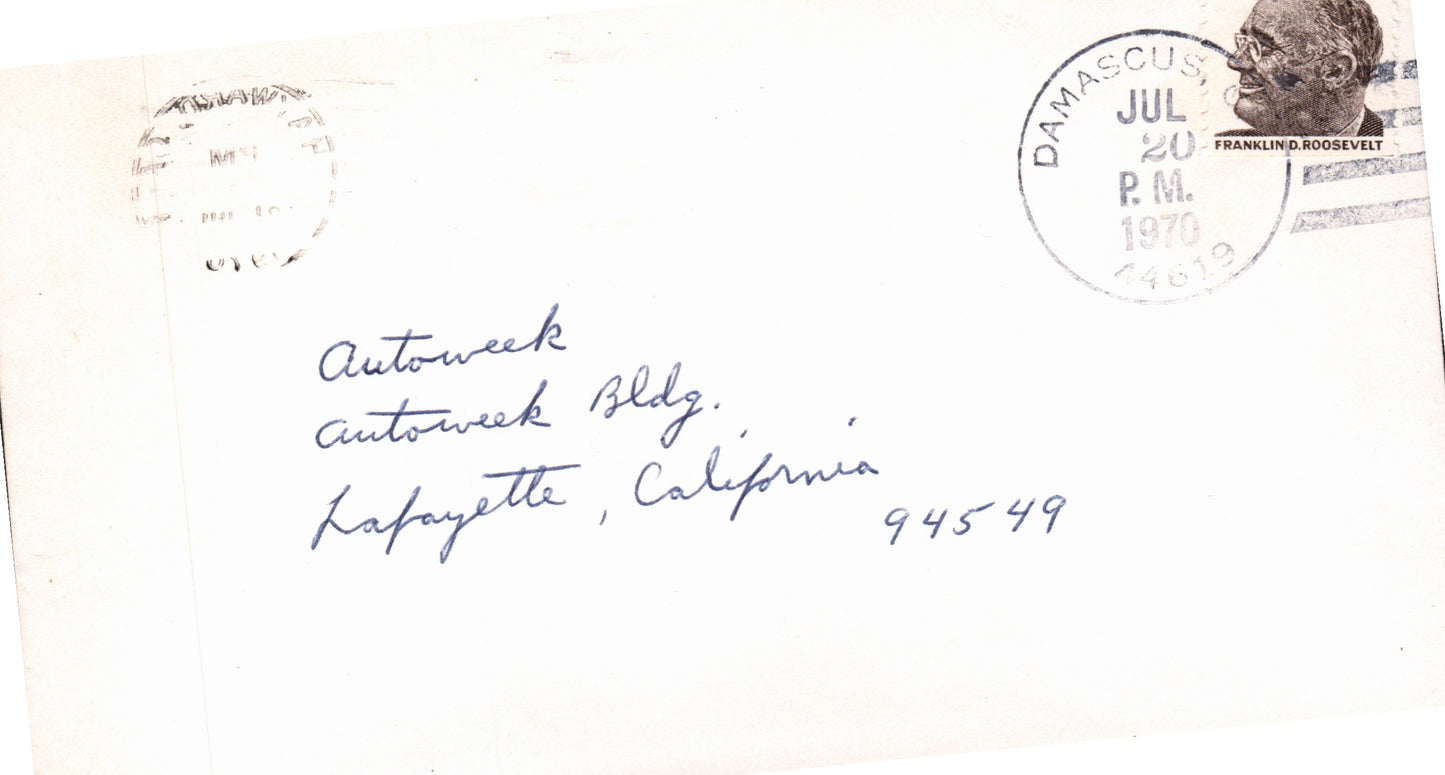 DAMASCUS,
JUL
20
P. M.
1970
44619
FRANKLIN D. ROOSEVELT
Autoweek
Autoweek Bldg.
Lafayette, California
94549